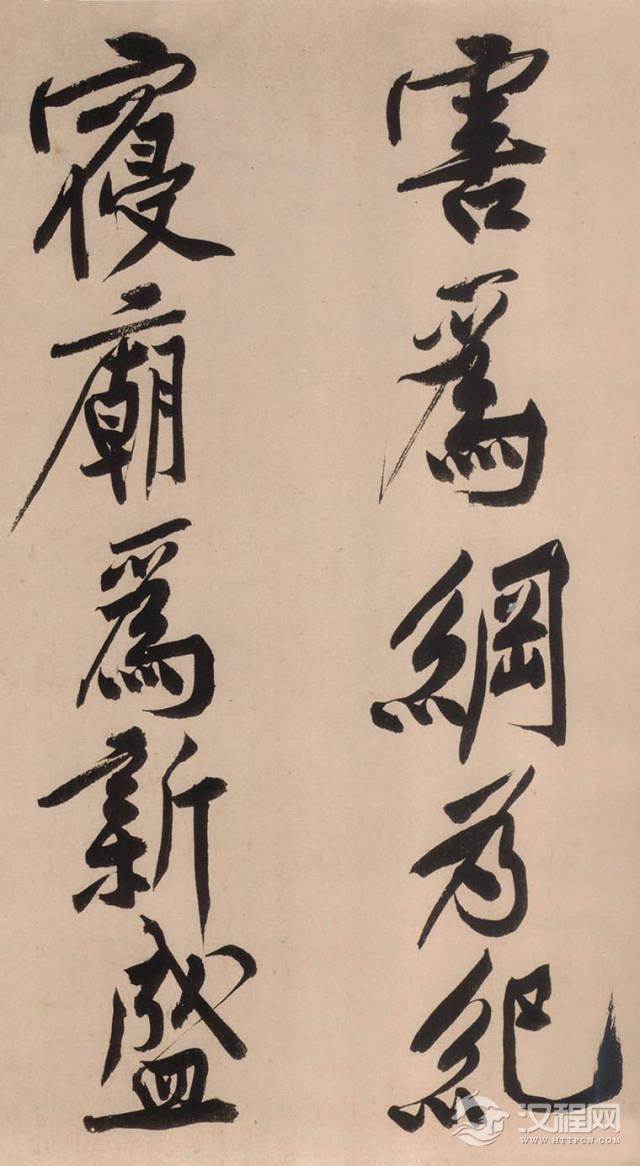 害爲綱為紀
寢廟爲新盛
汉程网
WWW.HTTPCN.COM